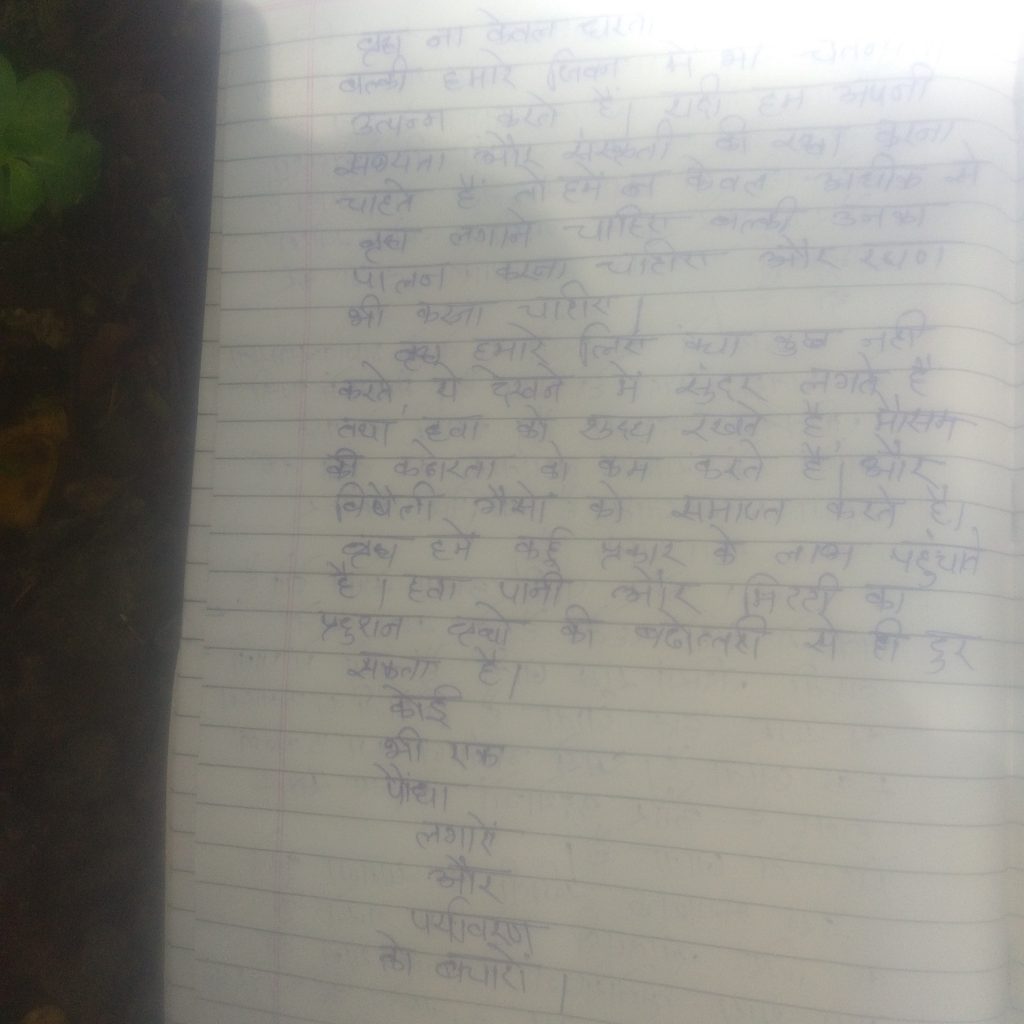 वृक्ष ना केवल धरती
बल्की हमारे जिवन में भी चेतना
उत्पन्न करते हैं। यदी हम अपनी
सभ्यता और संस्कृती की रक्षा करना
चाहते हैं तो हमें न केवल अधीक से
वृक्ष लगाने चाहिए बल्की उनका
पालन करना चाहीए और रक्षण
भी करना चाहीए।
वृक्ष हमारे लिए क्या कुछ नही
करते ये देखने में सुंदर लगते है
तथा हवा को शुध्द रखते हैं मौसम
की कठोरता को कम करते हैं। और
विषैली गैसों को समाप्त करते है।
वृक्ष हमें कई प्रकार के लाभ पहुंचाते
है। हवा पानी और मिटटी का
प्रदुशन वृक्षो की बढोत्तरी से ही दुर
सकता है।
कोई
भी एक
पौधा
लगाएं
और
पर्यावरण
को बचाएं।